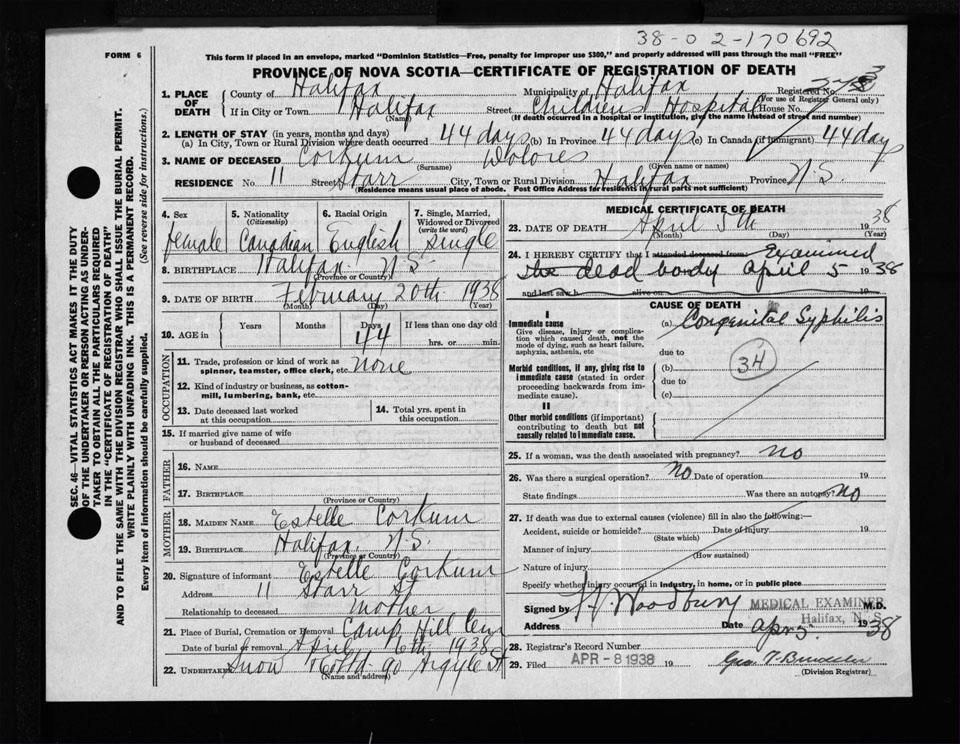 38-02-170692
FORM 6
This form if placed in an envelope, marked "Dominion Statistics—Free, penalty for improper use $300," and properly addressed will pass through the mail "FREE"
PROVINCE OF NOVA SCOTIA—CERTIFICATE OF REGISTRATION OF DEATH
1. PLACE OF DEATH County of Halifax Municipality of Halifax Registered No.
(For use of Registrar General only)
If in City or Town Halifax Street Childrens Hospital House No.
(Name) (If death occurred in a hospital or institution, give the name instead of street and number)
2. LENGTH OF STAY (in years, months and days)
(a) In City, Town or Rural Division where death occurred 44 days (b) In Province 44 days (c) In Canada (if immigrant) 44 days
3. NAME OF DECEASED Corkum Dolores
(Surname) (Given name or names)
RESIDENCE No. 11 Street Starr City, Town or Rural Division Halifax Province N.S.
(Residence means usual place of abode. Post Office Address for residents in rural parts not sufficient)
4. Sex female
5. Nationality (Citizenship) Canadian
6. Racial Origin English
7. Single, Married, Widowed or Divorced (write the word) Single
8. BIRTHPLACE Halifax N.S.
(Province or Country)
9. DATE OF BIRTH February 20th 1938
(Month) (Day) (Year)
10. AGE in Years Months Days 44 If less than one day old
hrs. or min.
OCCUPATION
11. Trade, profession or kind of work as spinner, teamster, office clerk, etc. none
12. Kind of industry or business, as cotton-mill, lumbering, bank, etc.
13. Date deceased last worked at this occupation
14. Total yrs. spent in this occupation
15. If married give name of wife or husband of deceased
FATHER
16. NAME
17. BIRTHPLACE
(Province or Country)
MOTHER
18. MAIDEN NAME Estelle Corkum
19. BIRTHPLACE Halifax, N.S.
(Province or Country)
20. Signature of informant Estelle Corkum
Address 11 Starr St
Relationship to deceased mother
21. Place of Burial, Cremation or Removal Camp Hill Cem
Date of burial or removal April 6th 1938
22. Undertaker Snow & Co Ltd 90 Argyle St
(Name and address)
MEDICAL CERTIFICATE OF DEATH
23. DATE OF DEATH April 5th 1938
(Month) (Day) (Year)
24. I HEREBY CERTIFY that I attended deceased from: Examined
the dead body April 5 1938
and last saw h alive on 19
CAUSE OF DEATH
I
Immediate cause (a) Congenital Syphilis
Give disease, injury or complication which caused death, not the mode of dying, such as heart failure, asphyxia, asthenia, etc
due to
Morbid conditions, if any, giving rise to immediate cause (stated in order proceeding backwards from immediate cause).
(b) 34
due to
(c)
II
Other morbid conditions (if important) contributing to death but not causally related to immediate cause.
25. If a woman, was the death associated with pregnancy? no
26. Was there a surgical operation? no Date of operation 19
State findings Was there an autopsy? no
27. If death was due to external causes (violence) fill in also the following:—
Accident, suicide or homicide? Date of injury 19
(State which)
Manner of injury
(How sustained)
Nature of injury
Specify whether injury occurred in industry, in home, or in public place
Signed by Woodbury MEDICAL EXAMINER M.D.
Halifax, N.S.
Address Date Apr 5 1938
28. Registrar's Record Number
29. Filed APR -8 1938 19
(Division Registrar)
SEC. 46—VITAL STATISTICS ACT MAKES IT THE DUTY
OF THE UNDERTAKER OR PERSON ACTING AS UNDER-
TAKER TO OBTAIN ALL THE PARTICULARS REQUIRED
IN THE "CERTIFICATE OF REGISTRATION OF DEATH"
AND TO FILE THE SAME WITH THE DIVISION REGISTRAR WHO SHALL ISSUE THE BURIAL PERMIT.
WRITE PLAINLY WITH UNFADING INK. THIS IS A PERMANENT RECORD.
Every item of information should be carefully supplied. (See reverse side for instructions.)